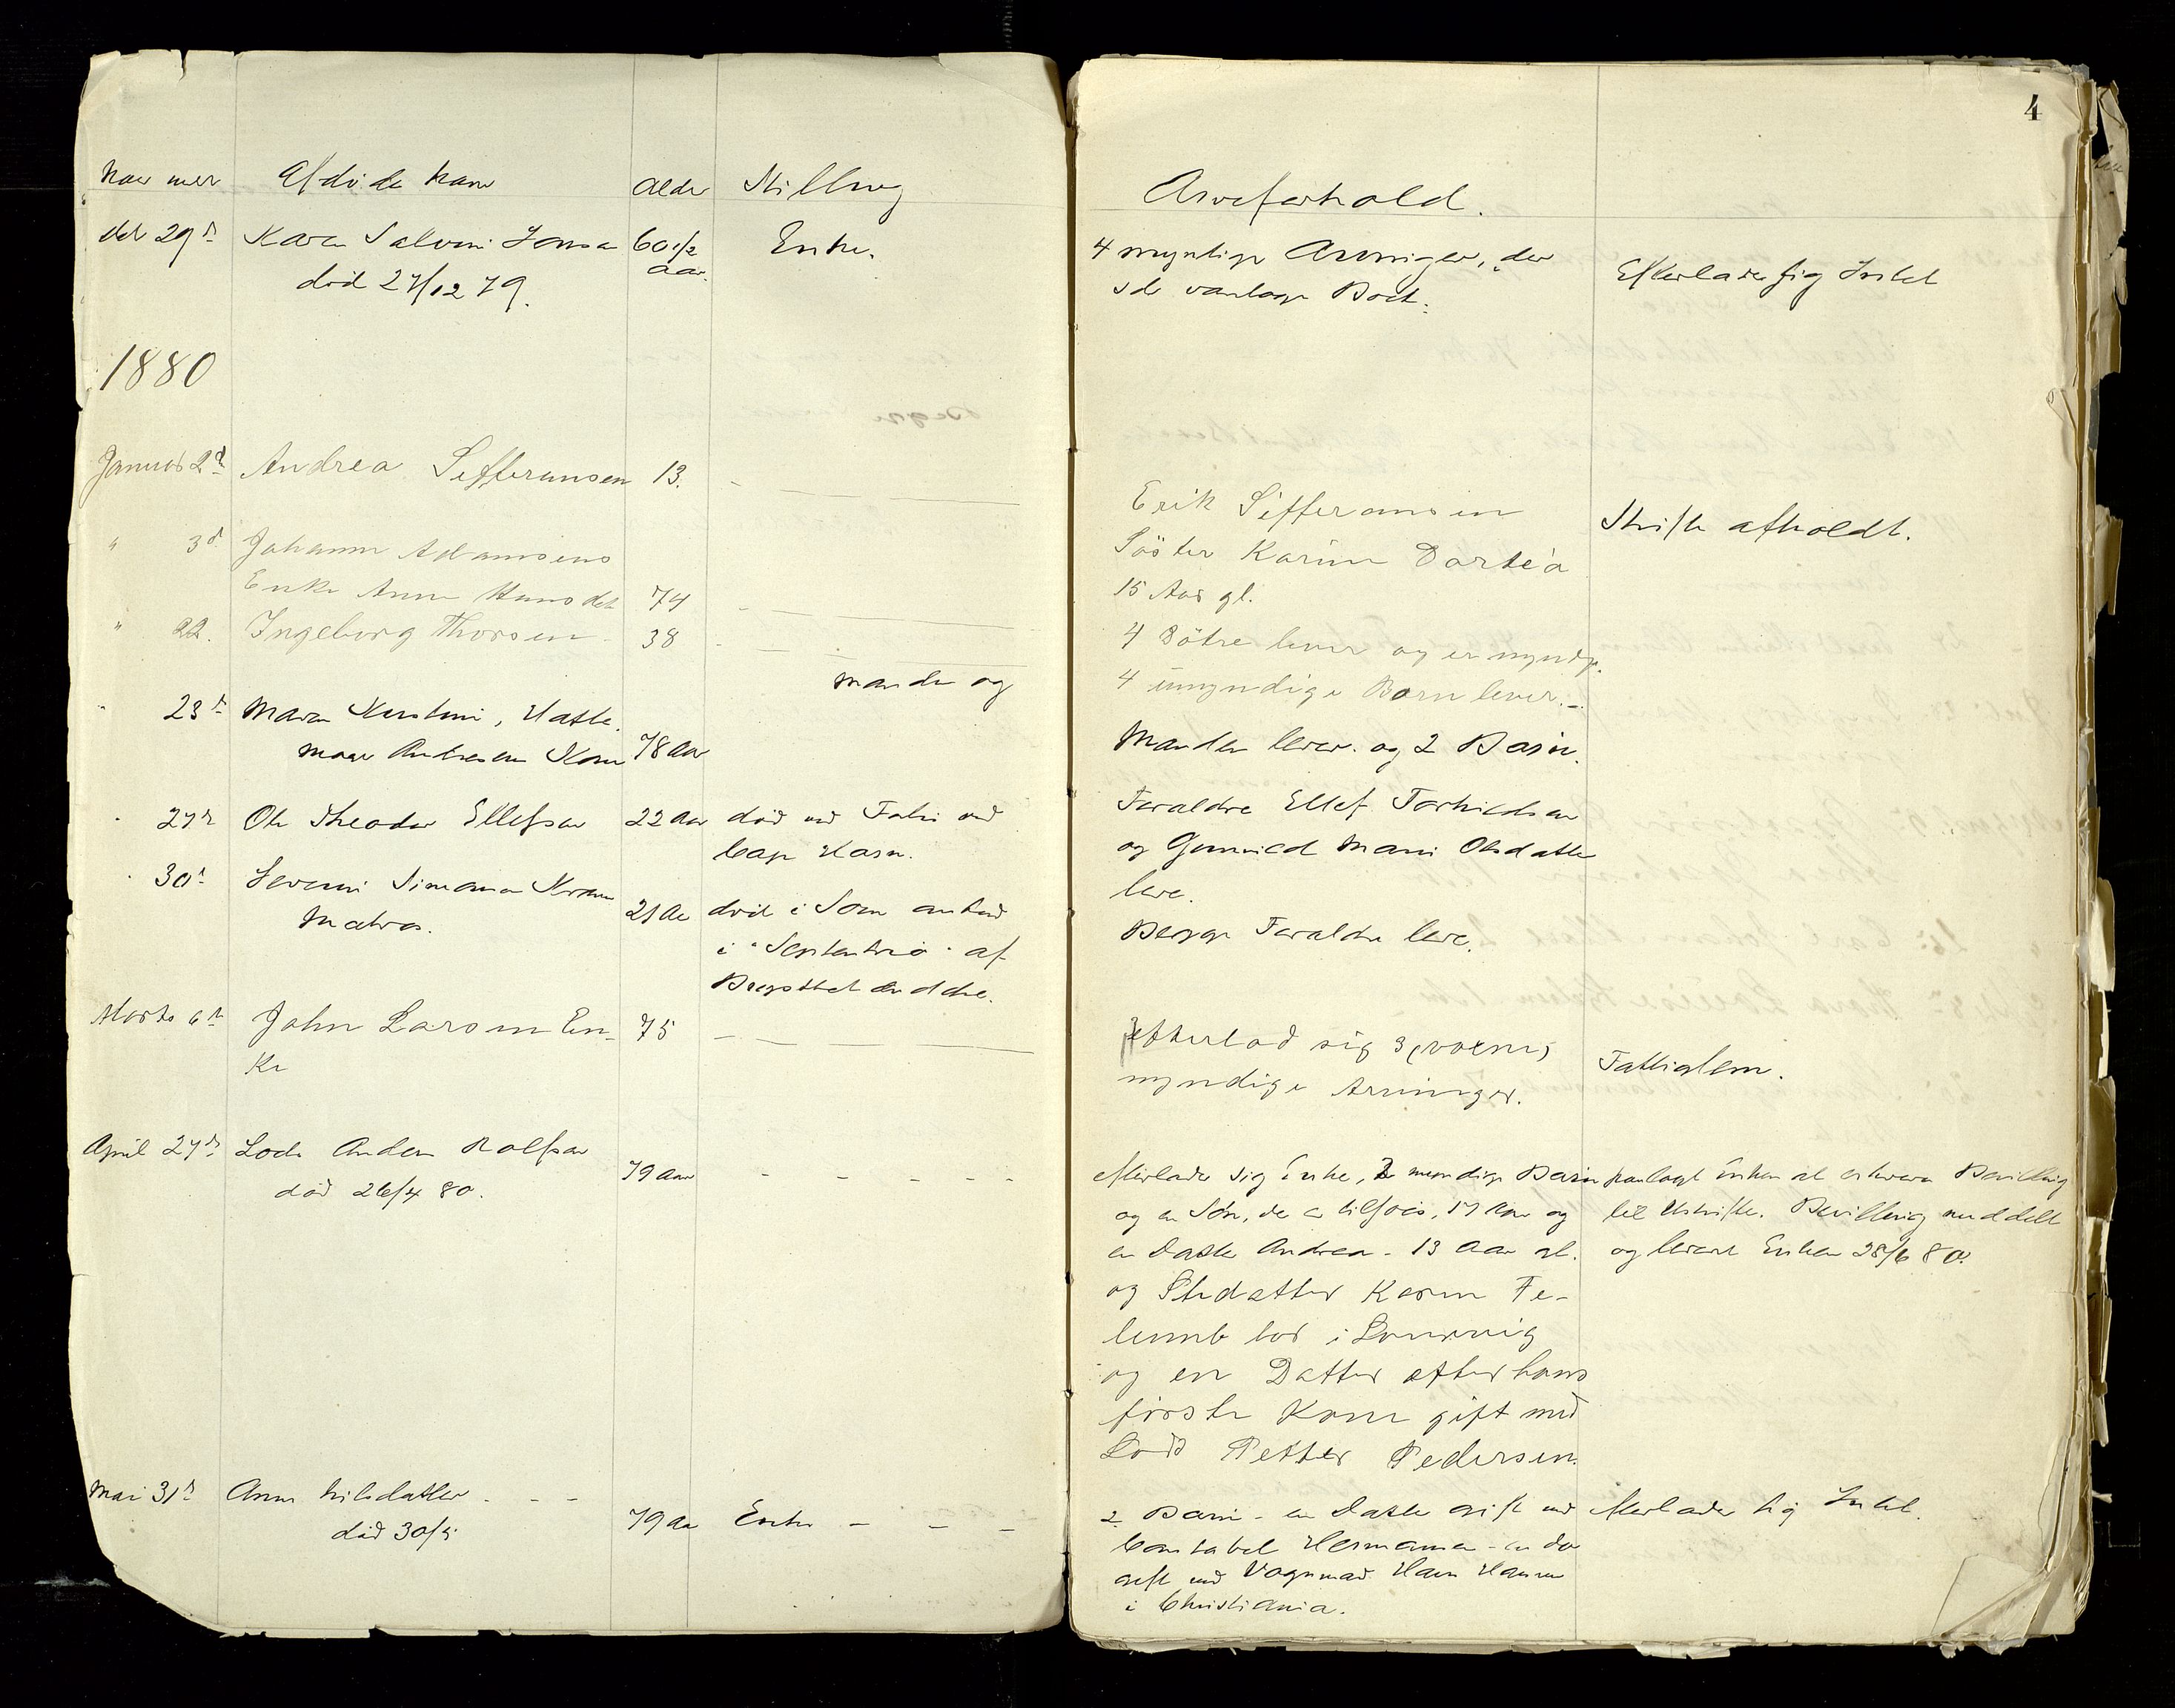 4
Afdøde Navn
Alder
Stilling
Arveforhold.
29d
60 1/2
Aar
Enke.
død 27/12 79.
4 myndige Arvinger, der
Efterlader sig Intet
1880
Januar 2d Andrea Sifferansen 13.
Erik Sifferansen
Söster Karine Dortea
15 Aar gl.
Skifte afholdt.
" 3d Johann Adamsens
Enke Anne Hansdat 74
4 Dötre lever og er myndge.
" 22. Ingeborg Thorsen 38
4 umyndige Børn lever.
Manden og
23d Maren
Andresen Kone 78 Aar
Manden lever og 2 Børn.
27d Ole Theodor Ellefsen 22 Aar død ved Fald ved
Cap Horn.
Foraldre Ellef
og Gunnild Marie Olsdatter
leve.
30d Simonsen
21 Aar død i
i "Septentrio" af
Begge Foraldre leve.
Marts 6d John Larsen En-
ke
75
Efterlod sig 3 (voxne)
myndige Arvinger.
Fattiglem.
April 27d Lods Anders Rolfsen
død 26/4 80.
79 Aar
Efterlader sig Enke, 2 myndige Børn
og en Søn, der er tilsøes, 17 Aar og
en Datter Andrea - 13 Aar gl.
og Stedatter Karen Te-
lumb bor i Laurvig
og en Datter efter hans
første Kone gift med
Lods Petter Pedersen.
paalagt Enken at erhverve Bevilling
til Uskifte. Bevilling meddelt
og leveret Enken 28/6 80.
Mai 31d Anne Nilsdatter
død 30/5
79 Aar Enke
2 Børn - en Datter gift med
Constabel Hermansen - en do
gift med Vognmand Hans Hansen
i Christiania.
Efterlader sig Intet.